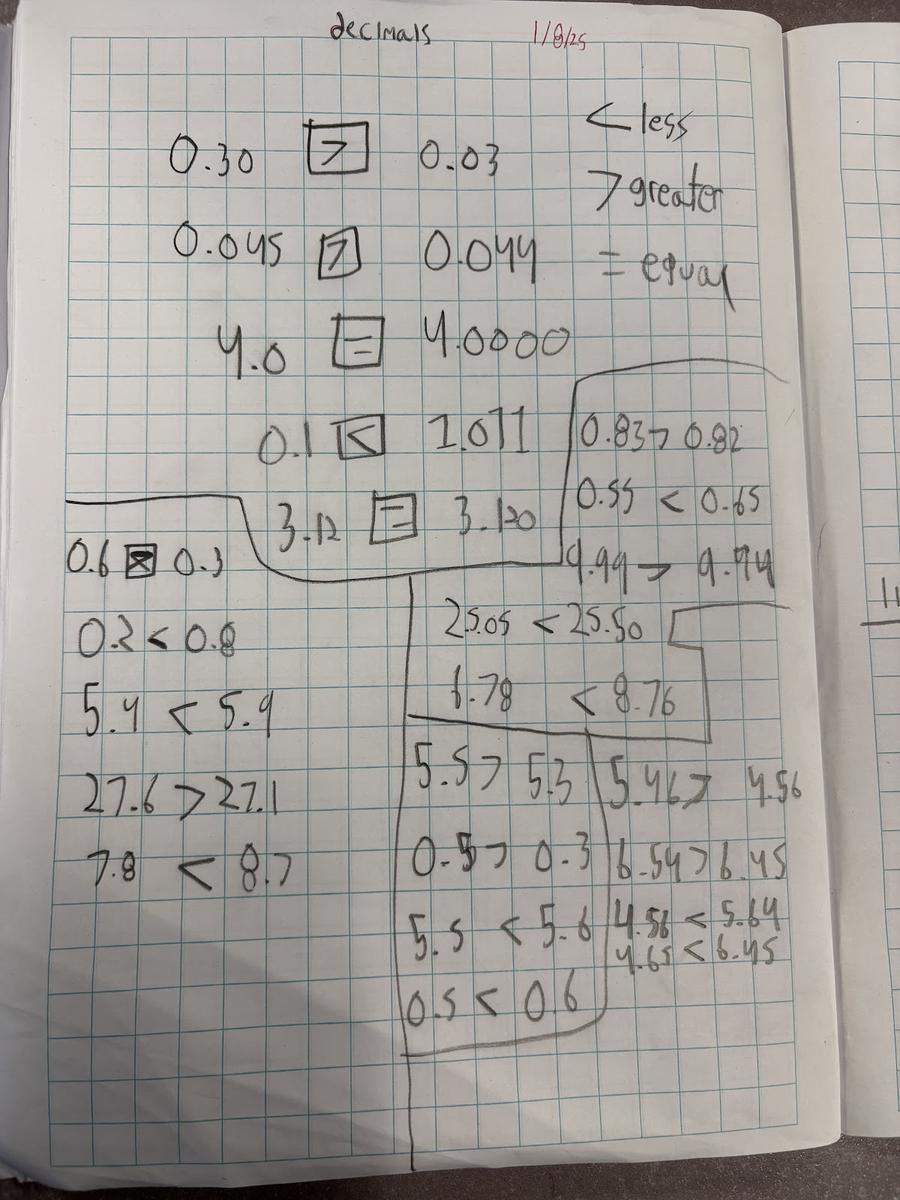 decimals 1/8/25
0.30 > 0.03
0.045 > 0.044
4.0 = 4.0000
0.1 < 1.011
3.12 = 3.120
< less
> greater
= equal
0.83 > 0.82
0.55 < 0.65
9.99 > 9.94
0.6 0.3
0.2 < 0.8
5.4 < 5.9
27.6 > 27.1
7.8 < 8.7
25.05 < 25.50
6.78 < 8.76
5.5 > 5.3
0.5 > 0.3
5.5 < 5.6
0.5 < 0.6
5.46 > 4.56
6.54 > 6.45
4.56 < 5.64
4.65 < 6.45